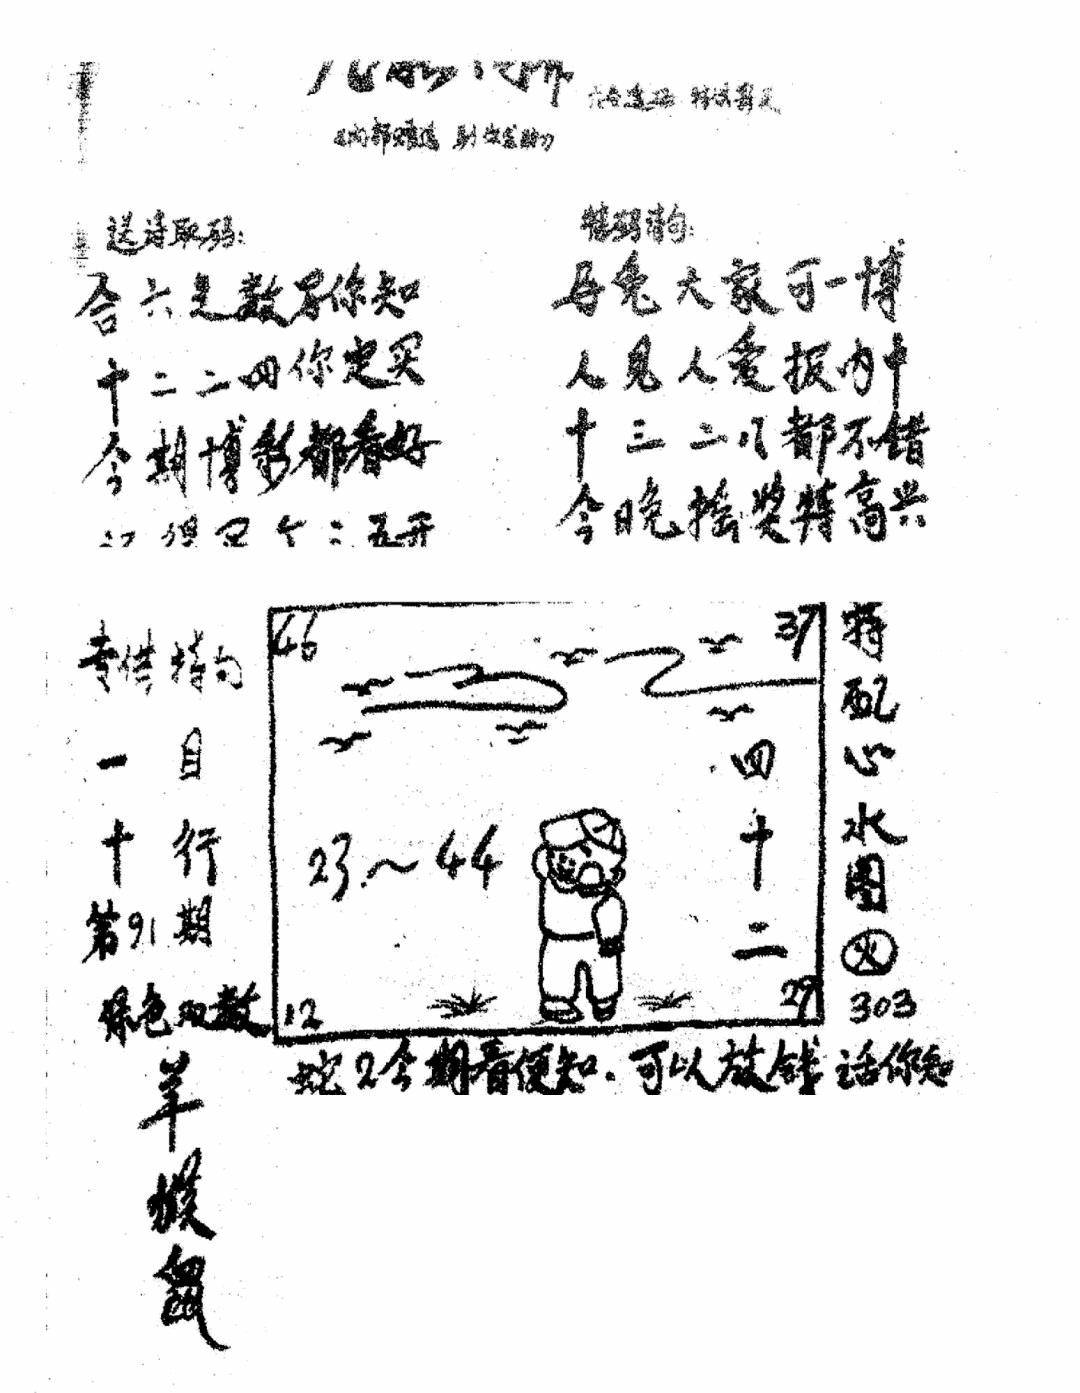 送诗取码:
特码诗句:
合六是数字你知
十二二四你定买
今期博彩都看好
二五开
马兔大家可一博
人见人爱报内中
十三二八都不错
今晚搅奖特高兴
专供特句
一目
十行
第91期
绿色双数
羊
猴
鼠
46
37
23.~44
四十二
12
29
特配心水图
火
303
蛇2今期看便知.可以放钱话你知